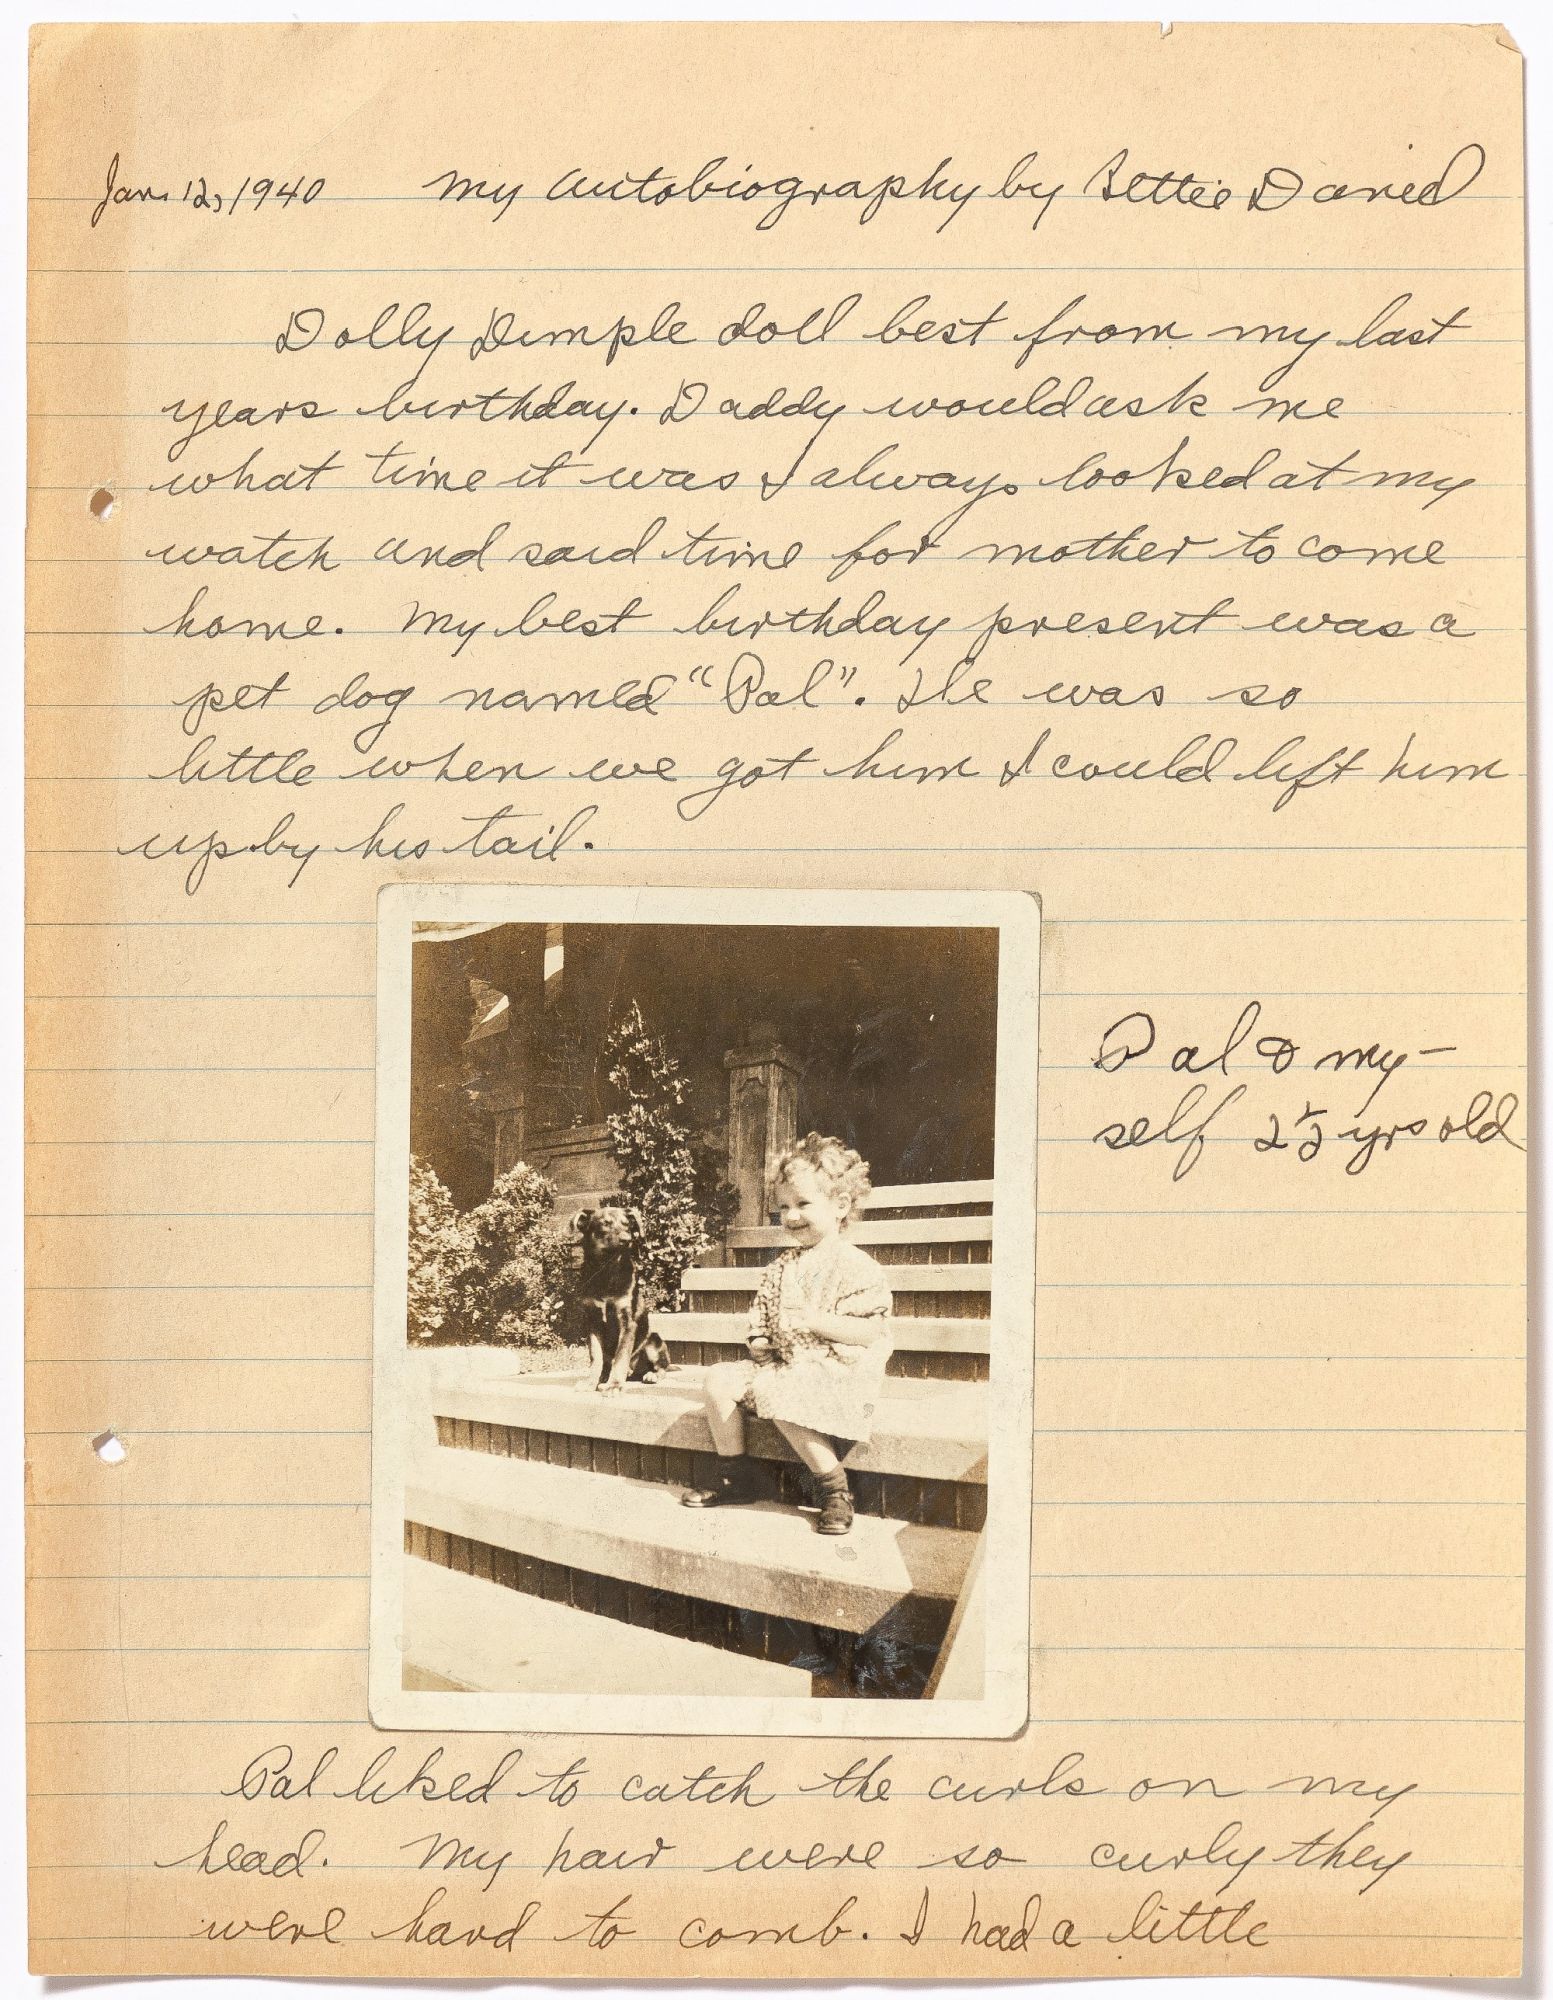 Jan. 12, 1940 My autobiography by Bettie David
Dolly Dimple doll best from my last
years birthday. Daddy would ask me
what time it was I always looked at my
watch and said time for mother to come
home. My best birthday present was a
pet dog named "Pal". He was so
little when we got him I could lift him
up by his tail.
Pal & my-
self 2½ yrs old
Pal liked to catch the curls on my
head. My hair were so curly they
were hard to comb. I had a little